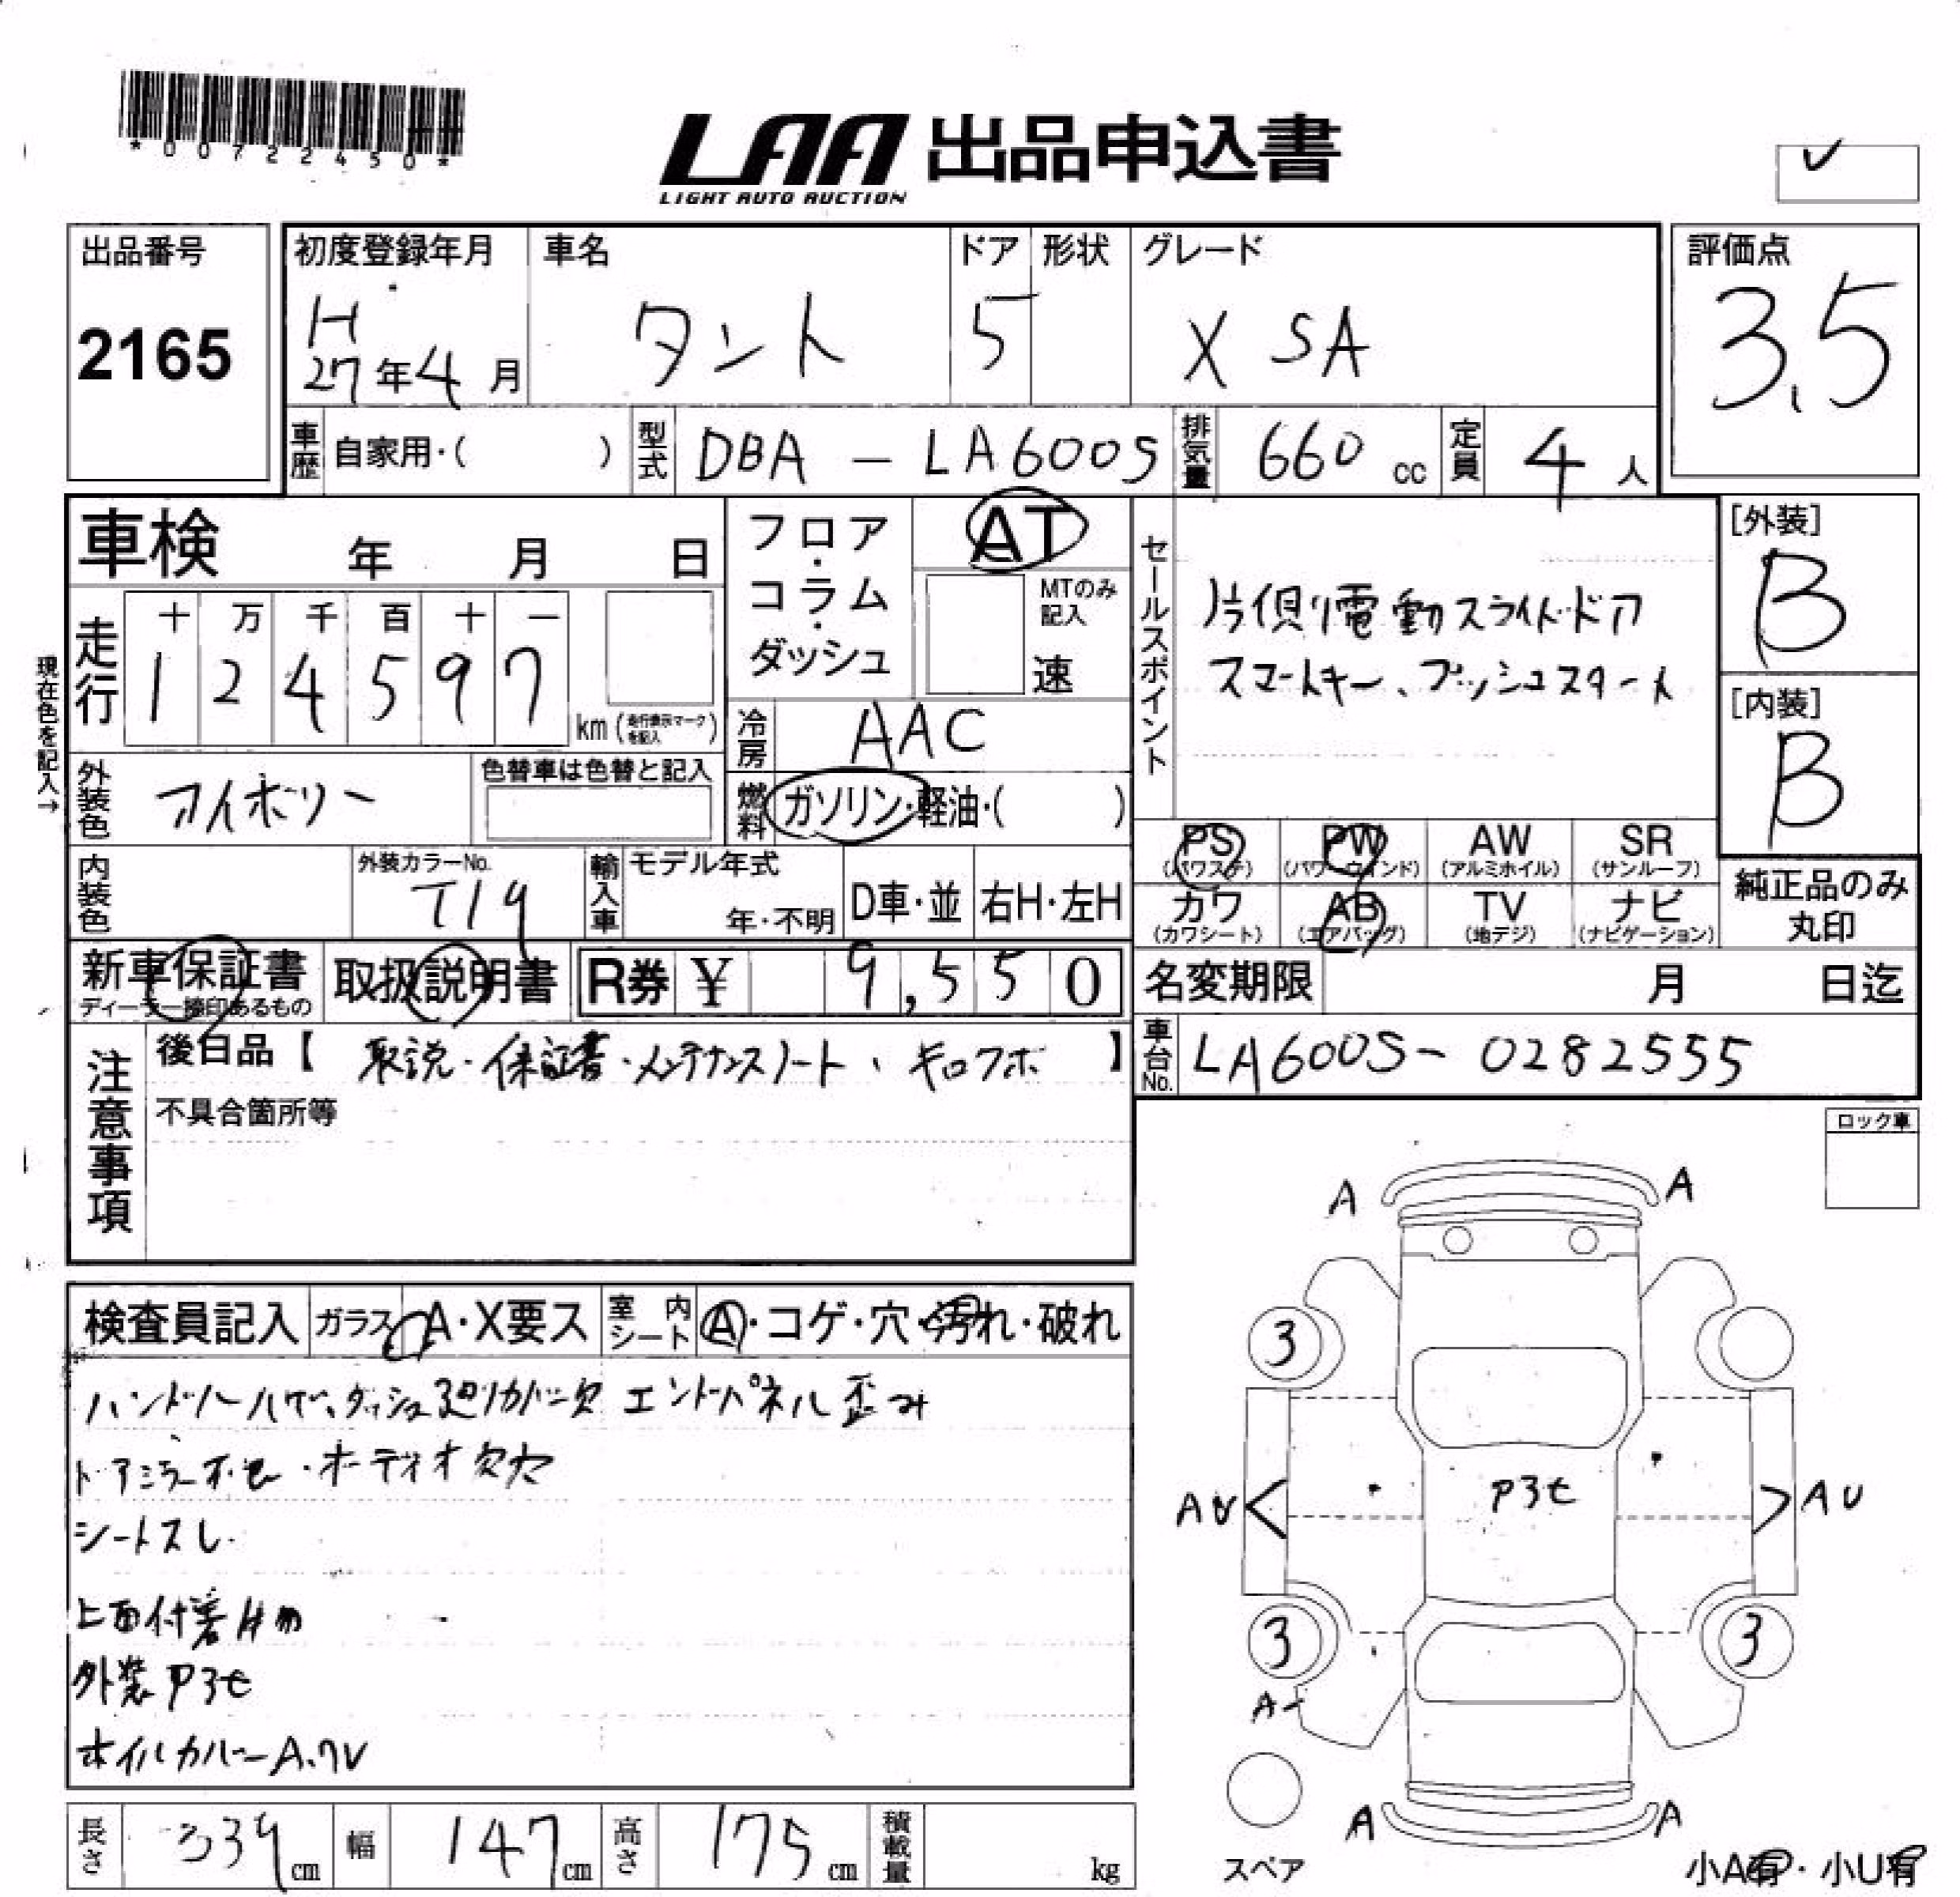 *00722450*
LAA 出品申込書
LIGHT AUTO AUCTION
出品番号
2165
初度登録年月
H
27年4月
車名
タント
ドア
5
形状
グレード
X SA
評価点
3.5
車歴 自家用・( )
型式 DBA - LA600S
排気量 660 cc
定員 4 人
車検 年 月 日
フロア・コラム・ダッシュ
AT
MTのみ記入
速
セールスポイント
片側電動スライドドア
スマートキー、プッシュスタート
[外装]
B
[内装]
B
現在色を記入→
走行
十 万 千 百 十 一
1 2 4 5 9 7
km (走行表示マークを記入)
冷房 AAC
外装色 アイボリー
色替車は色替と記入
燃料 ガソリン・軽油・( )
PS (パワステ)
PW (パワーウインド)
AW (アルミホイル)
SR (サンルーフ)
カワ (カワシート)
AB (エアバッグ)
TV (地デジ)
ナビ (ナビゲーション)
純正品のみ丸印
内装色
外装カラーNo.
T19
輸入車
モデル年式
年・不明
D車・並
右H・左H
新車保証書
ディーラー捺印あるもの
取扱説明書
R券 ¥ 9,550
名変期限 月 日迄
注意事項
後日品【 取説・保証書・メンテナンスノート、キロフボ 】
車台No. LA600S- 0282555
不具合箇所等
ロック車
検査員記入
ガラス A・X要ス
室内シート A・コゲ・穴・汚れ・破れ
ハンドルハゲ、ダッシュ廻りカバー欠 エンドパネル歪み
ドアミラー不良・オーディオ欠
シートスレ
上面付着物
外装P3セ
ホイルカバーA、ワレ
A A
3
AU AU
P3セ
3 3
A
A A
スペア
小A有・小U有
長さ 339 cm
幅 147 cm
高さ 175 cm
積載量 kg